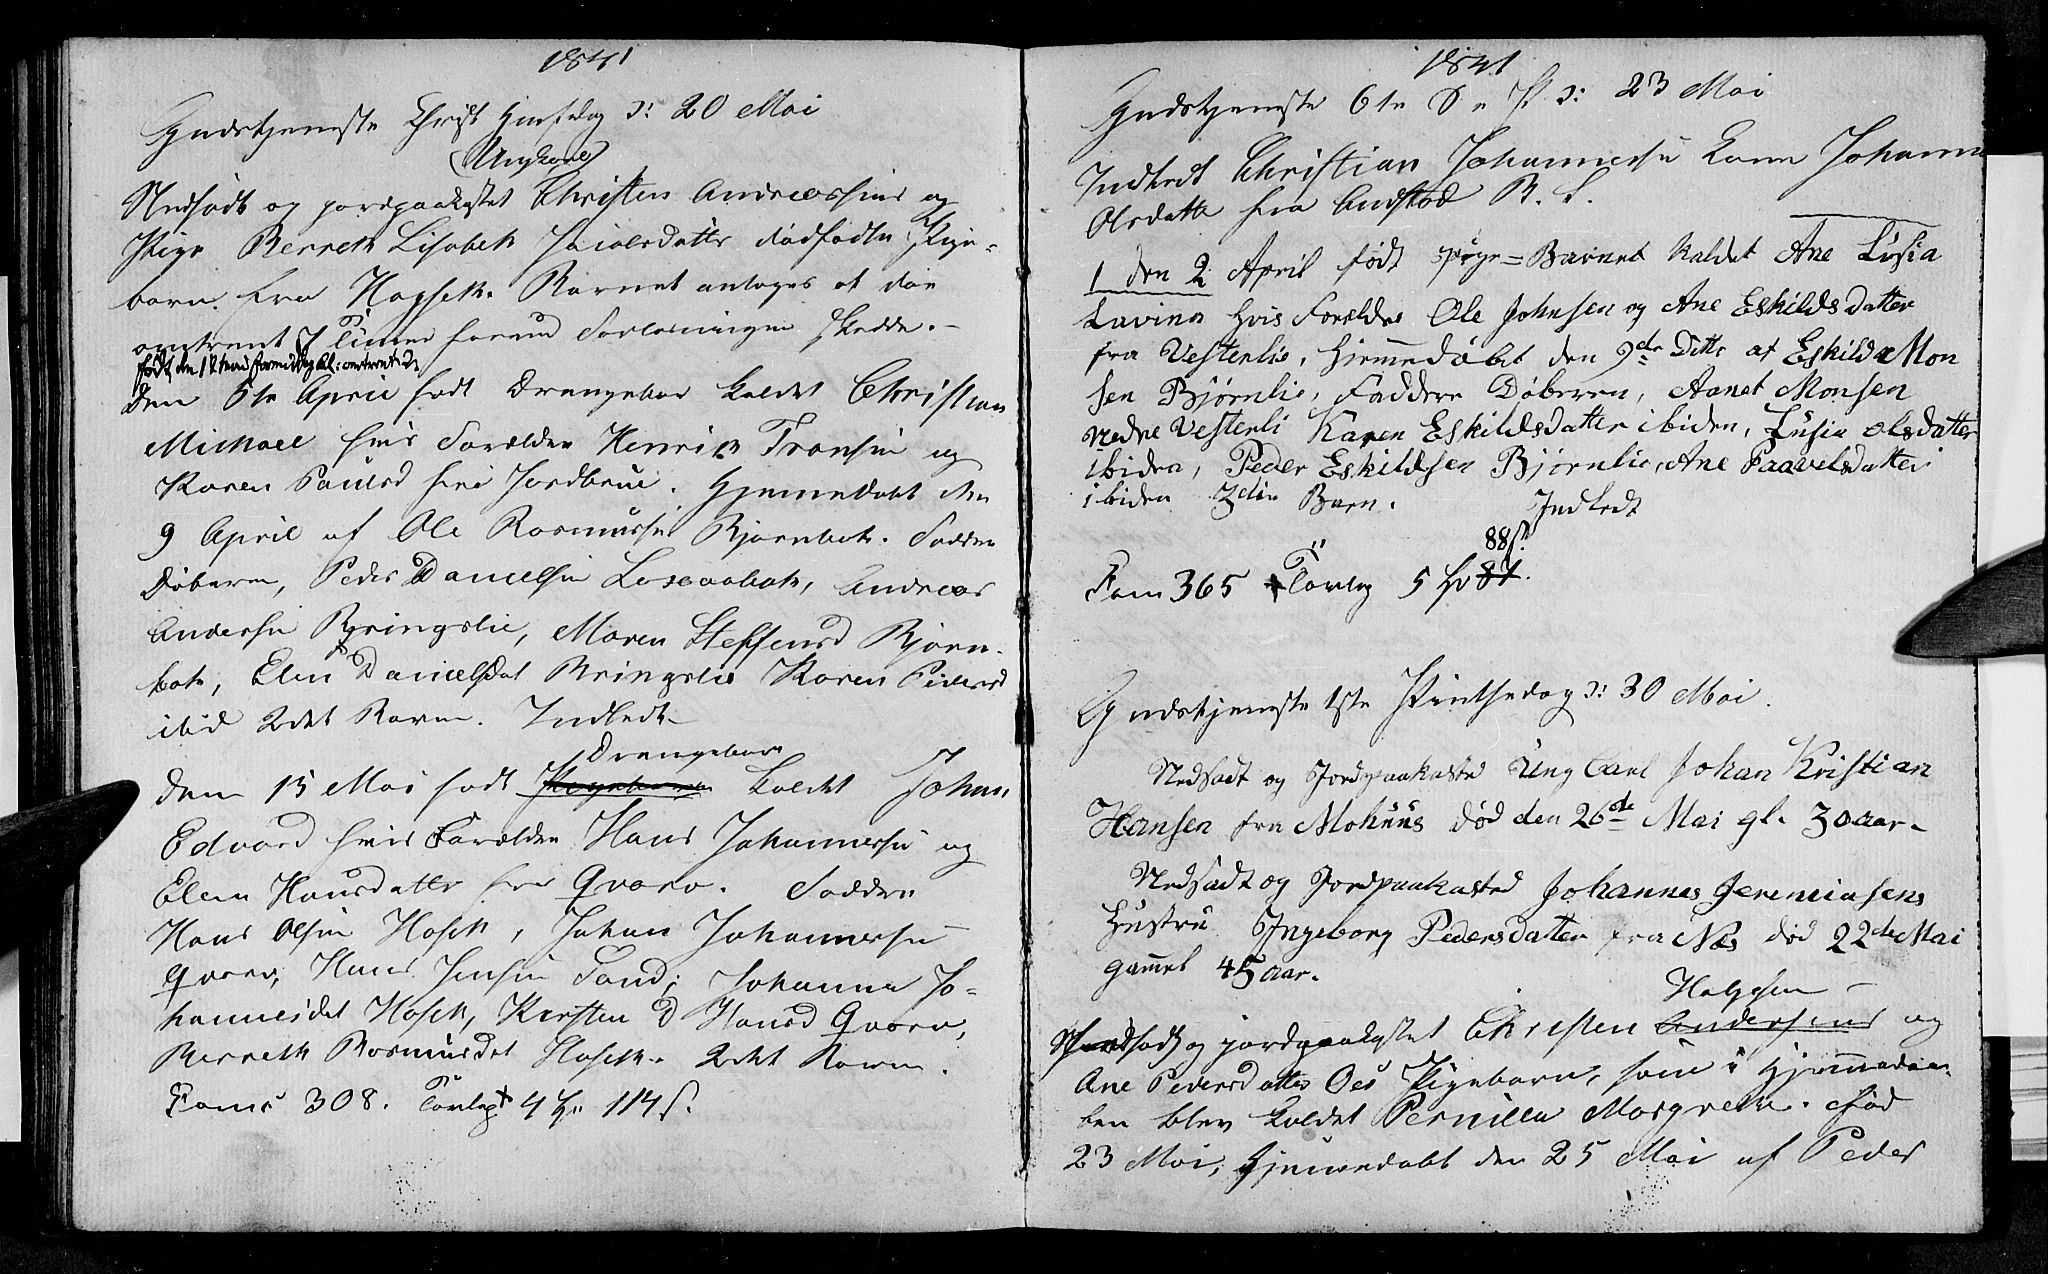 1841
Gudstjeneste Christ Himfdag d: 20 Mai
(Ungkarl)
Nedsadt og jordpaakastet Christen Andreassens og
Pige Bereth Lisabeth Jacobsdatters dødfødte Pige-
barn fra Barnet antages at døe
omtrent 7 Timer forend Forløsningen skedde. -
født den 18 formiddag kl: omtrent
Den 5te April født Drengebar kaldet Christian
Michael hvis Forældre Henrik Transen og
Karen Paulsd fra Jordbrue. Hjemmedøbt den
9 April af Ole Rasmussen Bjørnbak. Faddere
Døberen, Peder Danielsen Andreas
Andersen Bringslie, Maren Steffensd Bjørn-
bak, Elen Danielsdat Bringslie Karen Pedersd
ibid 2det Barn. Indledt
Drengebarn
Den 15 Mai født Pigebarn kaldet Johan
Edvard hvis Forældre Hans Johannessen og
Elen Hansdatter fra Qvarv. Faddere
Hans Olsen Johan Johannessen
Qvarv, Hans Jensen Sand; Johanna Jo-
hannesdet Kersten Hansd Qvarv,
Bereth Rasmusdet 2det Barn.
Fami 308. Tavlep 4 114 s.
1841
Gudstjeneste 6te S e P d: 23 Mai
Indledt Christian Johannesens Kone Johanna
Olsdatte fra B. L.
1 den 2 April født pige=Barnet kaldet Ane Lusia
Lavina hvis Forældre Ole Johnsen og Ane Eskildsdatter
fra Vesterlie, hjemmedøbt den 9de Ditto af Eskild Mon
sen Bjørnlie, Faddere Døberen, Aanet Monsen
nedre Vesterli Karen Eskildsdatter ibiden, Lusia olsdatter
ibiden, Peder Eskildsen Bjørnlie, Ane Paavelsdatter
ibiden 3die Barn. Indledt
88 s.
Fam 365 Tavlep 5
Gudstjeneste 1ste Pintsedag d: 30 Mai.
Nedsadt og Jordpaakasted Ung Carl Johan Kristian
Hansen fra Mohuus død den 26de Mai gl. 30 aar.
Nedsadt og Jordpaakasted Johannes Jeremiasens
Hustru Ingeborg Pedersdatter fra Næs død 22de Mai
gammel 45 aar.
Helgesen -
Nedsadt og jordpaakastet Christen Andersens og
Ane Pedersdatters Oes Pigebarn, som i Hjemmedaa-
ben blev kaldet Pernilla Margrethe. Fød
23 Mai, Hjemmedøbt den 25 Mai af Peder